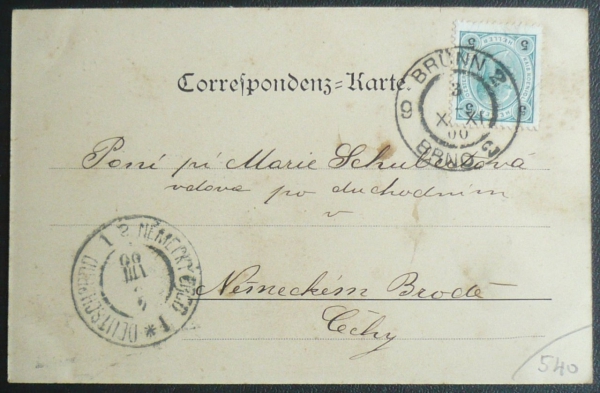 Correspondenz-Karte.
BRÜNN 2
3
XI XI
00
BRNO 2
9
5 HELLER 5
Paní pí Marie Schubertová
vdova po duchodním
v
Německém Brodě
Čechy
DEUTSCHBROD 1 2 NĚMECKÝ BROD 1 *
540